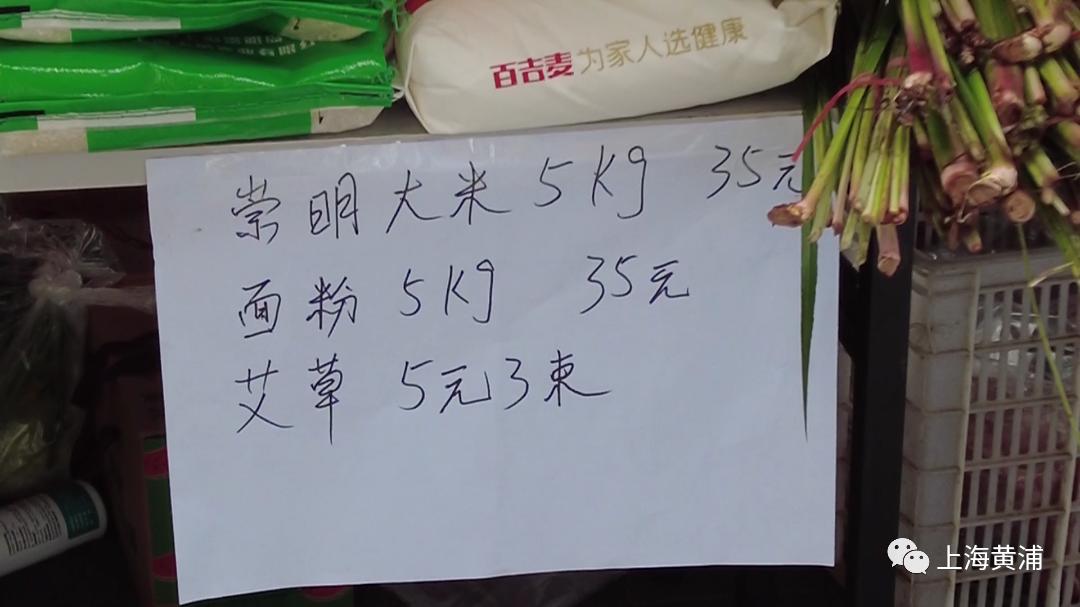 百吉麦 为家人选健康
崇明大米 5Kg 35元
面粉 5Kg 35元
艾草 5元3束
上海黄浦